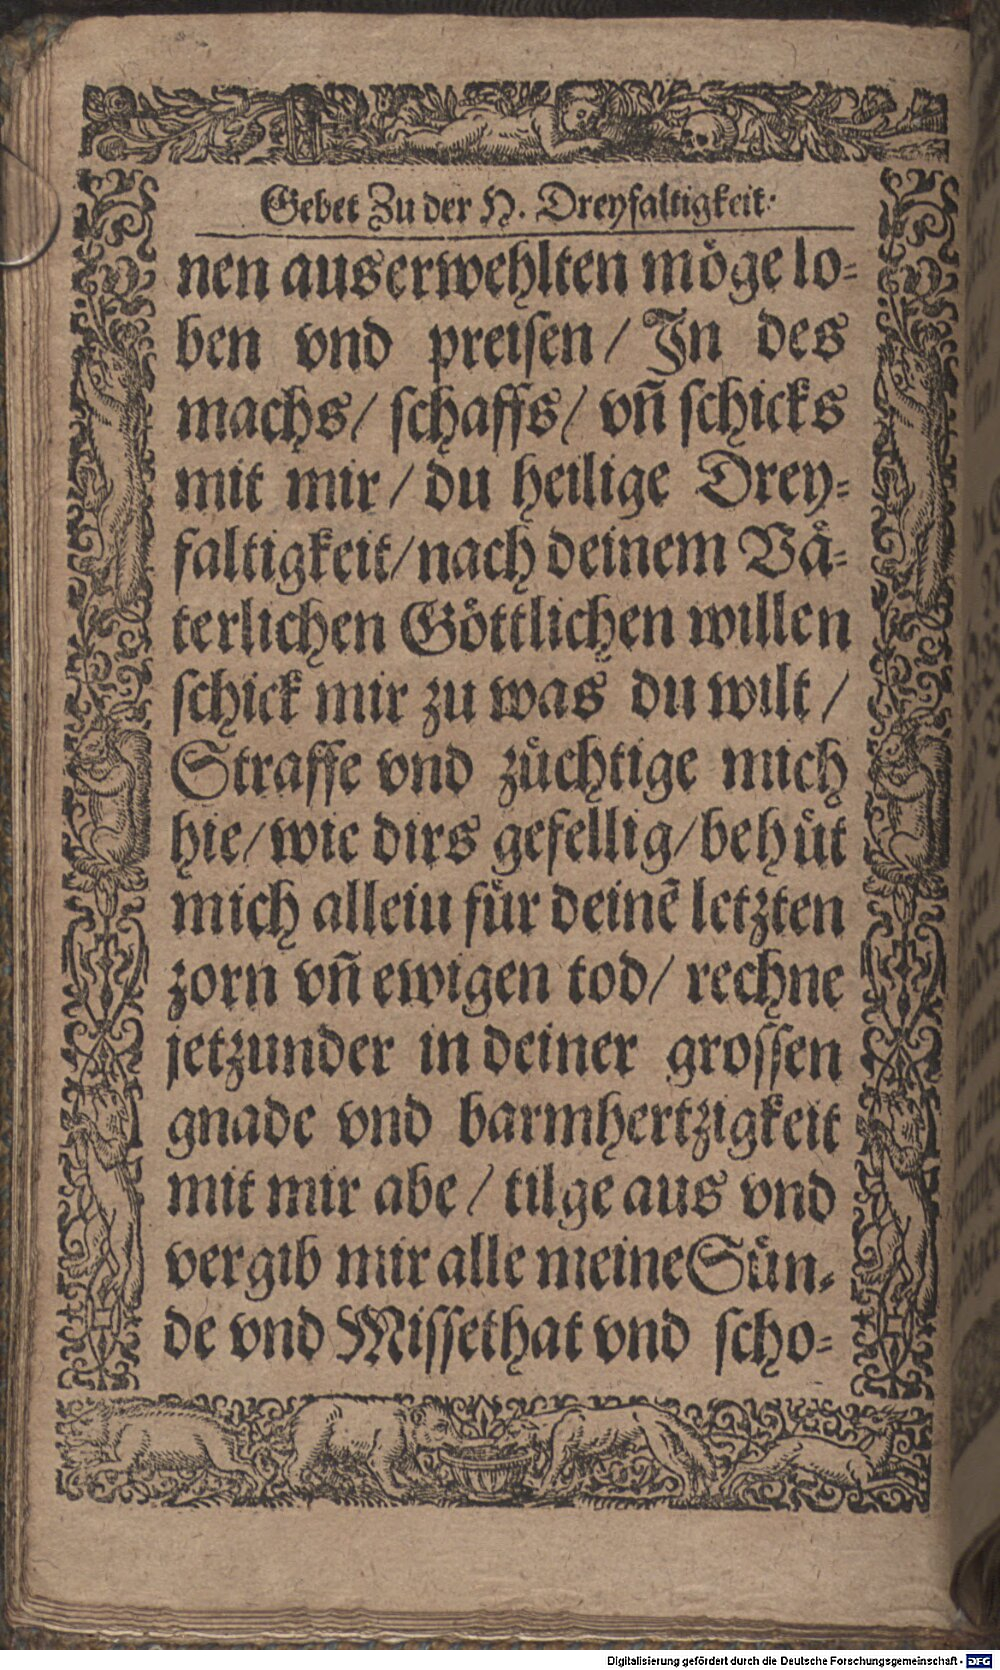 Gebet Zu der H. Dreyfaltigkeit:
nen auserwehlten möge lo⸗
ben vnd preisen / In des
machs / schaffs / vñ schicks
mit mir / du heilige Drey⸗
faltigkeit / nach deinem Vä⸗
terlichen Göttlichen willen
schick mir zu was du wilt /
Straffe vnd züchtige mich
hie / wie dirs gefellig / behüt
mich alleiu für deinẽ letzten
zorn vñ ewigen tod / rechne
jetzunder in deiner grossen
gnade vnd barmhertzigkeit
mit mir abe / tilge aus vnd
vergib mir alle meine Sün⸗
de vnd Missethat vnd scho⸗
Digitalisierung gefördert durch die Deutsche Forschungsgemeinschaft - DFG